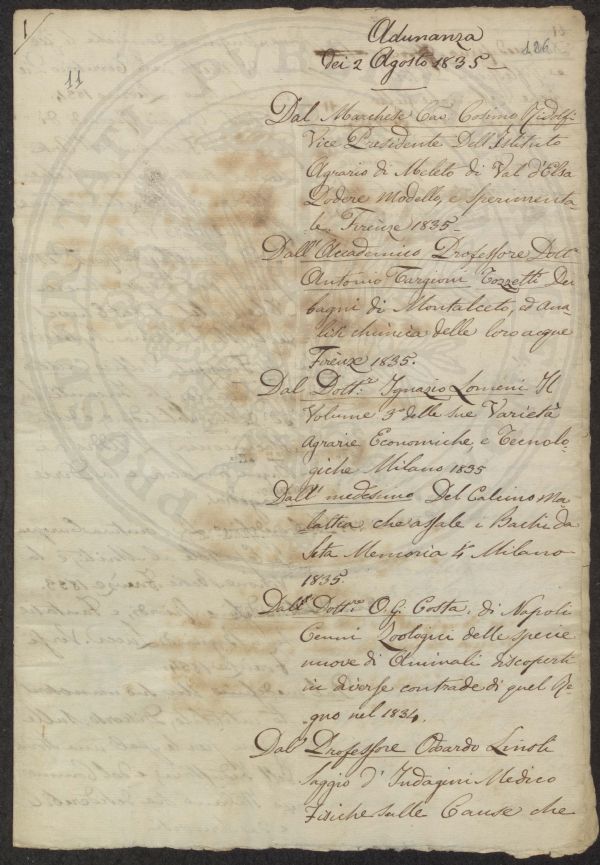 1
Adunanza
126
dei 2 Agosto 1835 —
11
Dal Marchese Cav Cosimo Ridolfi
Vice Presidente Dell'Istituto
Agrario di Meleto di Val d'Elsa
Podere Modello, e sperimenta-
le. Firenze 1835 —
Dall'Accademico Professore Dott
Antonio Targioni Tozzetti Dei
bagni di Montalceto, ed ana-
lisi chimica delle loro acque
Firenze 1835.
Dal Dott.re Ignazio Lomeni Il
Volume 3.o delle sue Varietà
Agrarie Economiche, e Tecnolo-
giche Milano 1835
Dall' medesimo Del Calcino Ma-
lattia, che assale i Bachi da
Seta Memoria 4a Milano
1835.
Dall Dott.re O. G. Costa, di Napoli
Cenni Zoologici delle specie
nuove di Animali discoperti
in diverse contrade di quel Re-
gno nel 1834.
Dal Professore Odoardo Linoli
Saggio d'Indagini Medico
Fisiche sulle Cause che